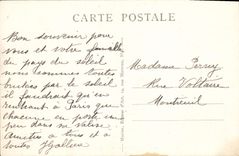 CARTE POSTALE
Bon souvenir pour
vous et votre famille
du pays du soleil
nous sommes toutes
brulées par le soleil
il faudrait qu'en
rentrant à Paris que
chacune en porte un
peu dans sa valise
Amitiés à tous et à
toutes
Madame Perry
Rue Voltaire
Montreuil